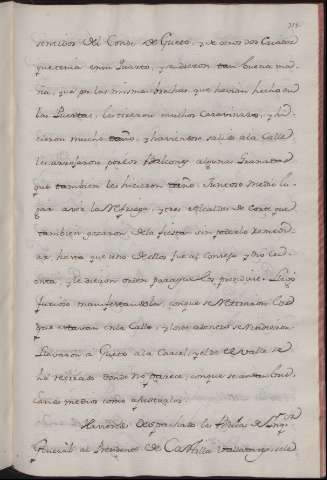 sentidos del Conde de Guero, y de otros dos Criados
que tenia en su Quarto, y se dieron tan buena ma-
ña, que por las mismas brechas, que havian hecho en
las Puertas, les tiraron muchos Caravinazos, y hi-
cieron mucho daño, y haviendose salido a la Calle
les arrojaron por los Balcones algunas Granadas
que tambien les hicieron daño. En esto medio lu-
gar a la Refriega, y tres Alcaldes de Corte que
tambien gozaron de la fiesta sin poderlo remedi-
ar, hasta que uno de ellos fue al Consejo, y dio cu-
enta, y se dieron orden para que los prendiese.
furioso manifestandola, conque se retiraron los
que estavan en la Calle, y los de adentro se rindieron.
Llevaron a Guero a la Carcel, y el de el Valle se
ha retirado donde no parece, conque se andan bus-
cando medios como ajustarlos.
Haviendo despachado las Bulas de Inq.or
General al Presidente de Castilla